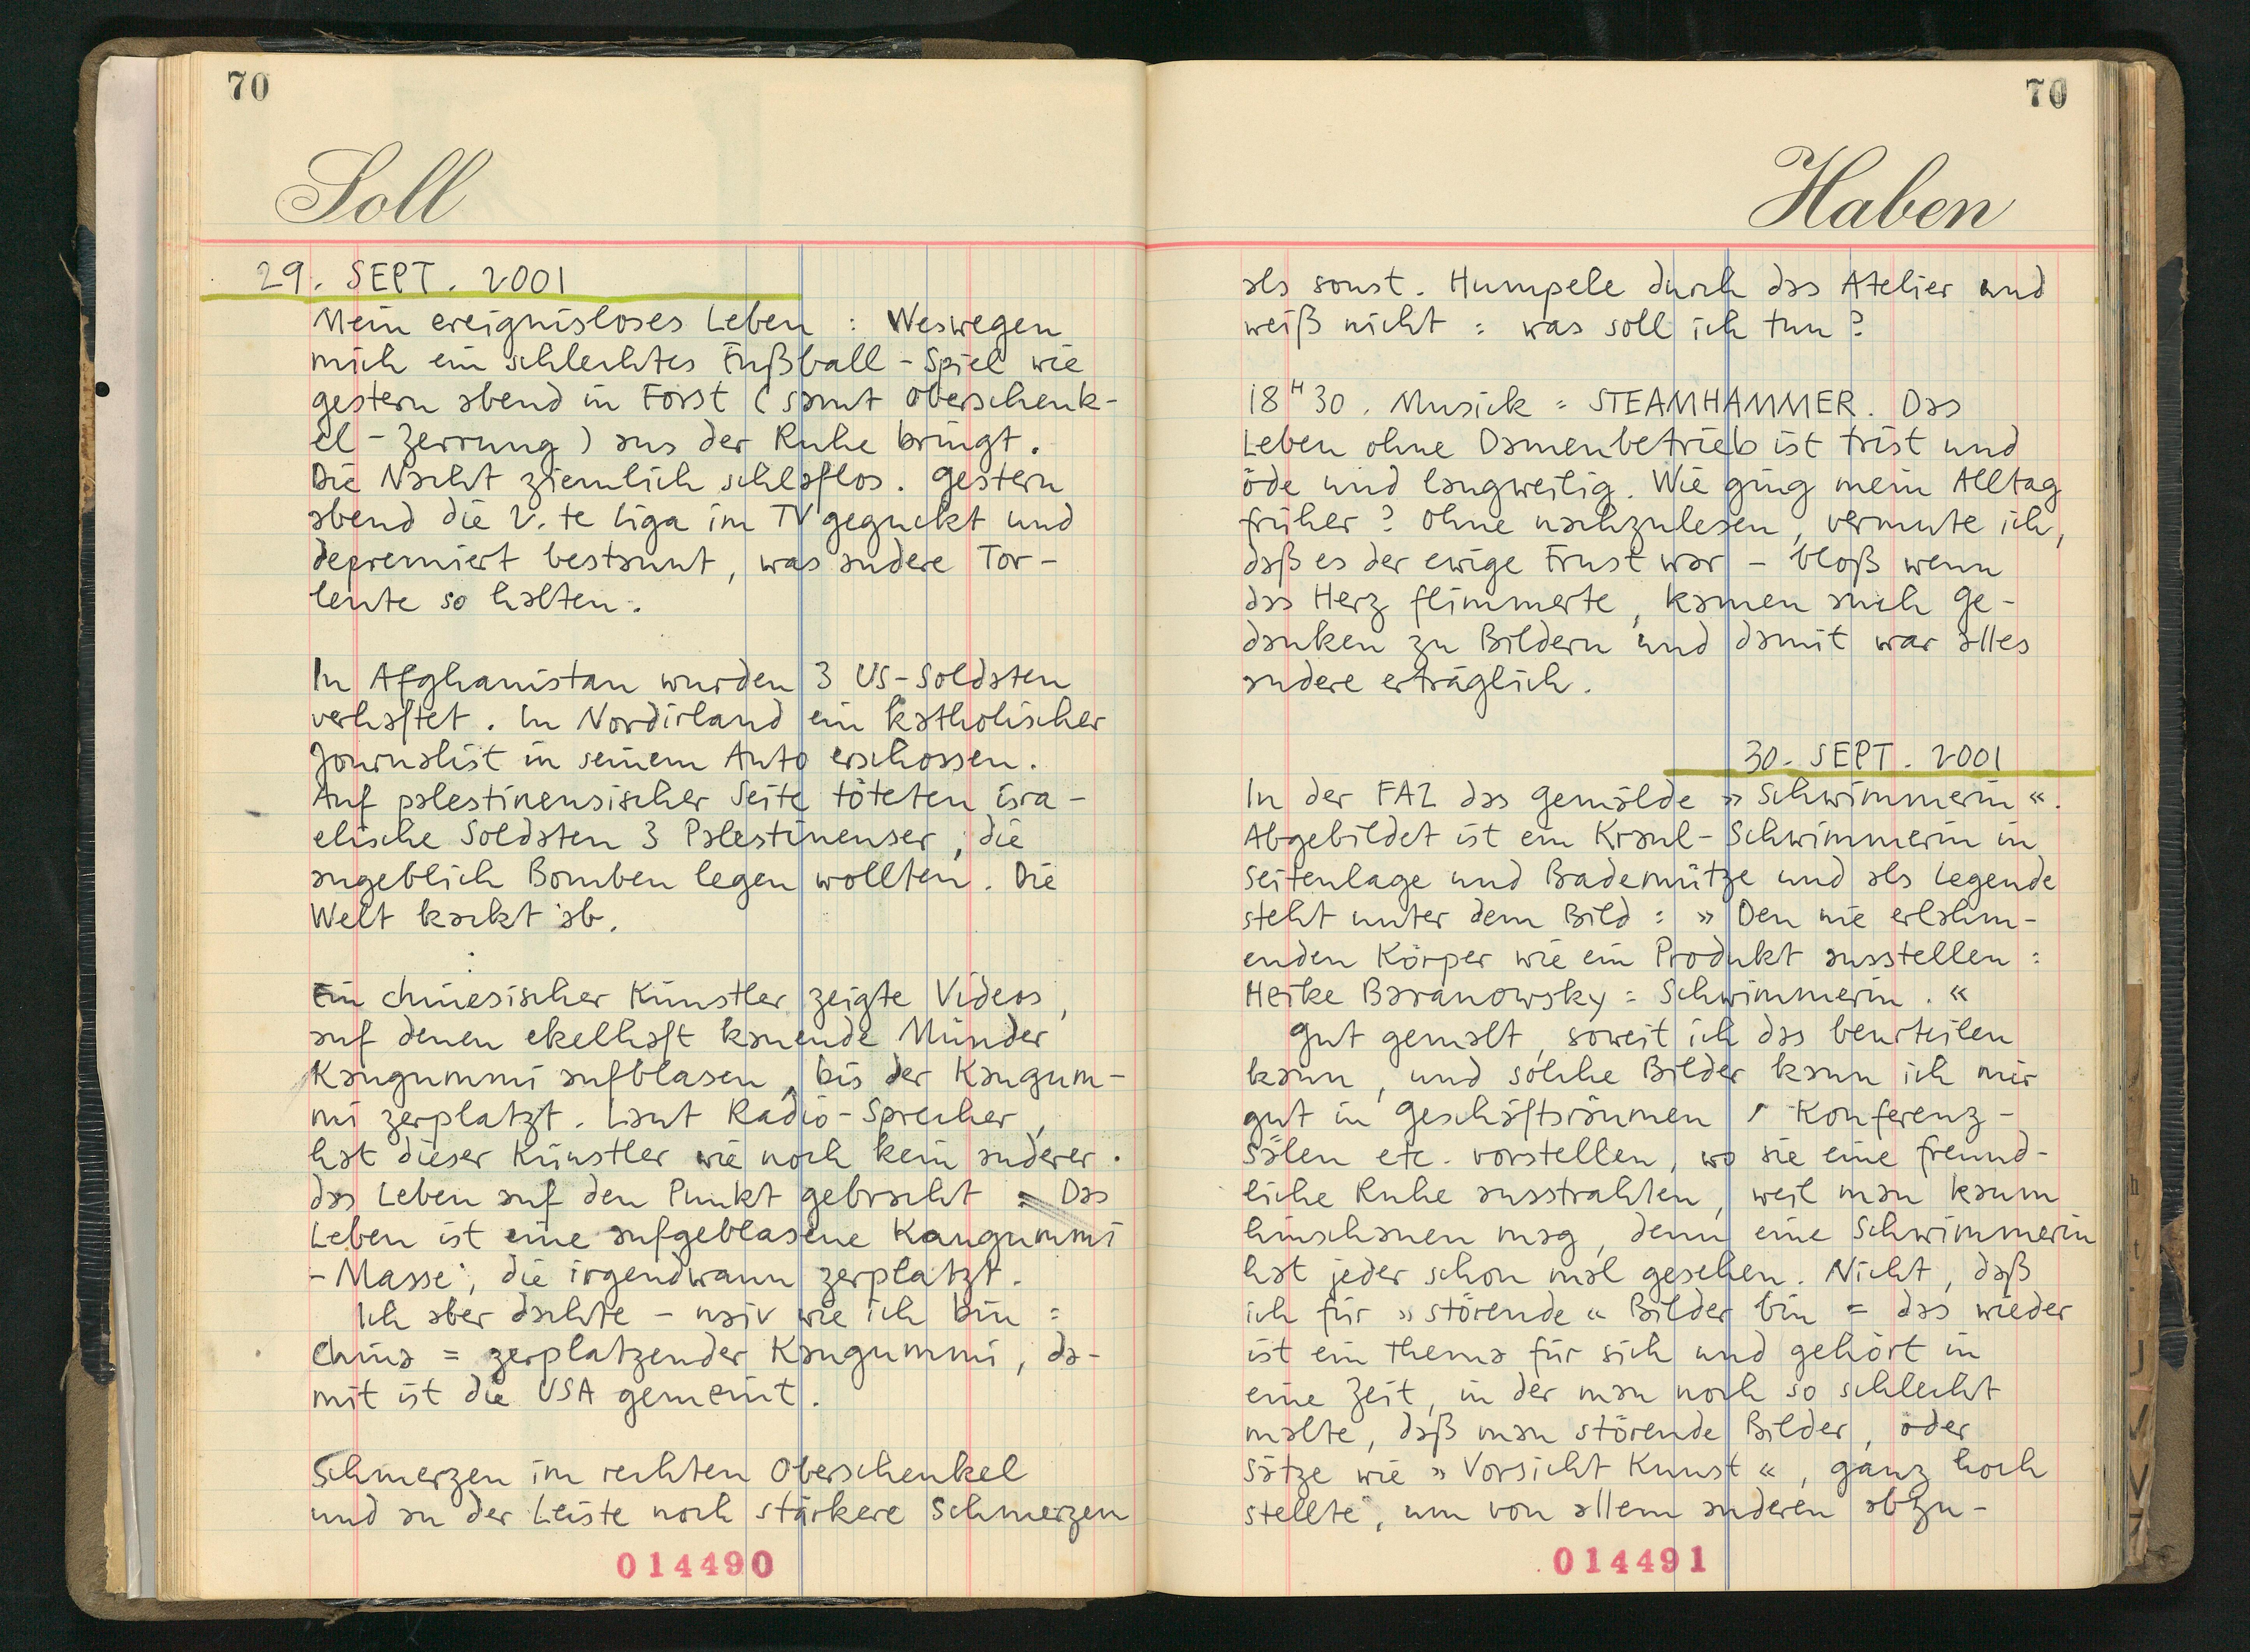 70
Soll
29. SEPT. 2001
Mein ereignisloses Leben : Weswegen
mich ein schlechtes Fußball-Spiel wie
gestern abend in Forst (samt Oberschenk-
el-Zerrung) aus der Ruhe bringt.
Die Nacht ziemlich schlaflos. Gestern
abend die 2.te Liga im TV geguckt und
depremiert bestaunt, was andere Tor-
leute so halten.
In Afghanistan wurden 3 US-Soldaten
verhaftet. In Nordirland ein katholischer
Journalist in seinem Auto erschossen.
Auf palestinensischer Seite töteten isra-
elische Soldaten 3 Palestinenser, die
angeblich Bomben legen wollten. Die
Welt kackt ab.
Ein chinesischer Künstler zeigte Videos,
auf denen ekelhaft kauende Münder
Kaugummi aufblasen, bis der Kaugum-
mi zerplatzt. Laut Radio-Sprecher,
hat dieser Künstler wie noch kein anderer
das Leben auf den Punkt gebracht = Das
Leben ist eine aufgeblasene Kaugummi
-Masse, die irgendwann zerplatzt.
Ich aber dachte - naiv wie ich bin =
China = zerplatzender Kaugummi, da-
mit ist die USA gemeint.
Schmerzen im rechten Oberschenkel
und an der Leiste noch stärkere Schmerzen
014490
70
Haben
als sonst. Humpele durch das Atelier und
weiß nicht : was soll ich tun?
18H30. Musick = STEAMHAMMER. Das
Leben ohne Damenbetrieb ist trist und
öde und langweilig. Wie ging mein Alltag
früher? Ohne nachzulesen, vermute ich,
daß es der ewige Frust war - bloß wenn
das Herz flimmerte, kamen auch Ge-
danken zu Bildern und damit war alles
andere erträglich.
30. SEPT. 2001
In der FAZ das Gemälde »Schwimmerin«.
Abgebildet ist ein Kraul-Schwimmerin in
Seitenlage und Bademütze und als Legende
steht unter dem Bild : »Den nie erlahm-
enden Körper wie ein Produkt ausstellen :
Heike Baranowsky = Schwimmerin.«
Gut gemalt, soweit ich das beurteilen
kann, und solche Bilder kann ich mir
gut in Geschäftsräumen, Konferenz-
Sälen etc. vorstellen, wo sie eine freund-
liche Ruhe ausstrahlen, weil man kaum
hinschauen mag, denn eine Schwimmerin
hat jeder schon mal gesehen. Nicht, daß
ich für »störende« Bilder bin = das wieder
ist ein Thema für sich und gehört in
eine Zeit, in der man noch so schlecht
malte, daß man störende Bilder, oder
Sätze wie »Vorsicht Kunst«, ganz hoch
stellte, um von allem anderen abzu-
014491